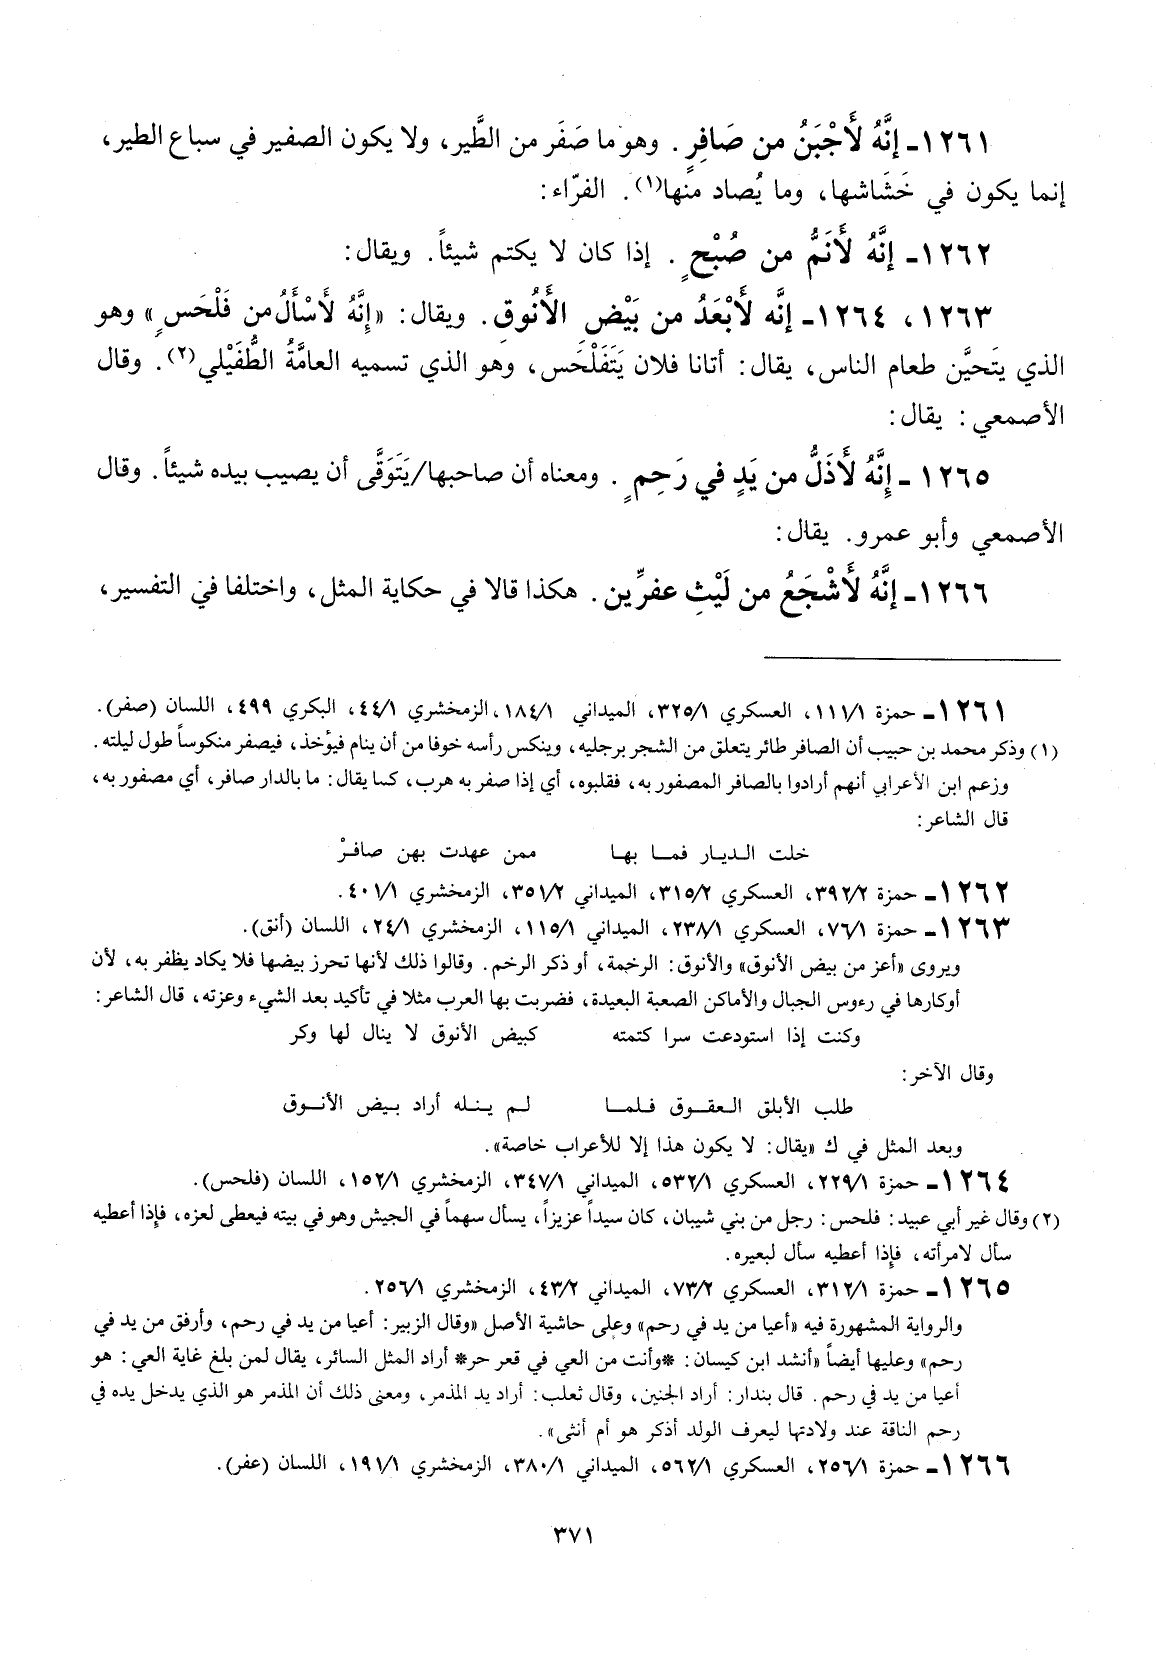 ١٢٦١ـ إنَّهُ لَأَجْبَنُ من صَافِرٍ. وهو ما صَفَر من الطَّير، ولا يكون الصفير في سباع الطير،
إنما يكون في خَشَاشها، وما يُصاد منها(١). الفرّاء:
١٢٦٢ـ إنَّهُ لَأَنَمُّ من صُبْحٍ. إذا كان لا يكتم شيئاً. ويقال:
١٢٦٣، ١٢٦٤ـ إنَّه لَأَبْعَدُ من بَيْضِ الأَنُوقِ. ويقال: «إنَّهُ لَأَسْأَلُ من فَلْحَسٍ» وهو
الذي يتَحيَّن طعام الناس، يقال: أتانا فلان يَتَفَلْحَس، وهو الذي تسميه العامَّةُ الطُّفَيْلي(٢). وقال
الأصمعي: يقال:
١٢٦٥ ـ إِنَّهُ لَأَذَلُّ من يَدٍ في رَحِمٍ. ومعناه أن صاحبها/يَتَوَقَّى أن يصيب بيده شيئاً. وقال
الأصمعي وأبو عمرو. يقال:
١٢٦٦ـ إنَّهُ لَأَشْجَعُ من لَيْثِ عفرِّين. هكذا قالا في حكاية المثل، واختلفا في التفسير،
١٢٦١ـ حمزة ١١١/١، العسكري ٣٢٥/١، الميداني ١٨٤/١، الزمخشري ٤٤/١، البكري ٤٩٩، اللسان (صفر).
(١) وذكر محمد بن حبيب أن الصافر طائر يتعلق من الشجر برجليه، وينكس رأسه خوفا من أن ينام فيؤخذ، فيصفر منكوساً طول ليلته.
وزعم ابن الأعرابي أنهم أرادوا بالصافر المصفور به، فقلبوه، أي إذا صفر به هرب، كما يقال: ما بالدار صافر، أي مصفور به،
قال الشاعر:
خلت الديار فما بها ممن عهدت بهن صافرْ
١٢٦٢ـ حمزة ٣٩٢/٢، العسكري ٣١٥/٢، الميداني ٣٥١/٢، الزمخشري ٤٠١/١.
١٢٦٣ـ حمزة ٧٦/١، العسكري ٢٣٨/١، الميداني ١١٥/١، الزمخشري ٢٤/١، اللسان (أنق).
ويروى «أعز من بيض الأنوق» والأنوق: الرخمة، أو ذكر الرخم. وقالوا ذلك لأنها تحرز بيضها فلا يكاد يظفر به، لأن
أوكارها في رءوس الجبال والأماكن الصعبة البعيدة، فضربت بها العرب مثلا في تأكيد بعد الشيء وعزته، قال الشاعر:
وكنت إذا استودعت سرا كتمته كبيض الأنوق لا ينال لها وكر
وقال الآخر:
طلب الأبلق العقوق فلما لم ينله أراد بيض الأنوق
وبعد المثل في ك «يقال: لا يكون هذا إلا للأعراب خاصة».
١٢٦٤ـ حمزة ٢٢٩/١، العسكري ٥٣٢/١، الميداني ٣٤٧/١، الزمخشري ١٥٢/١، اللسان (فلحس).
(٢) وقال غير أبي عبيد: فلحس: رجل من بني شيبان، كان سيداً عزيزاً، يسأل سهماً في الجيش وهو في بيته فيعطى لعزه، فإذا أعطيه
سأل لامرأته، فإذا أعطيه سأل لبعيره.
١٢٦٥ـ حمزة ٣١٢/١، العسكري ٧٣/٢، الميداني ٤٣/٢، الزمخشري ٢٥٦/١.
والرواية المشهورة فيه «أعيا من يد في رحم» وعلى حاشية الأصل «وقال الزبير: أعيا من يد في رحم، وأرفق من يد في
رحم» وعليها أيضاً «أنشد ابن كيسان: *وأنت من العي في قعر حر* أراد المثل السائر، يقال لمن بلغ غاية العي: هو
أعيا من يد في رحم. قال بندار: أراد الجنين، وقال ثعلب: أراد يد المذمر، ومعنى ذلك أن المذمر هو الذي يدخل يده في
رحم الناقة عند ولادتها ليعرف الولد أذكر هو أم أنثى».
١٢٦٦ـ حمزة ٢٥٦/١، العسكري ٥٦٢/١، الميداني ٣٨٠/١، الزمخشري ١٩١/١، اللسان (عفر).
٣٧١